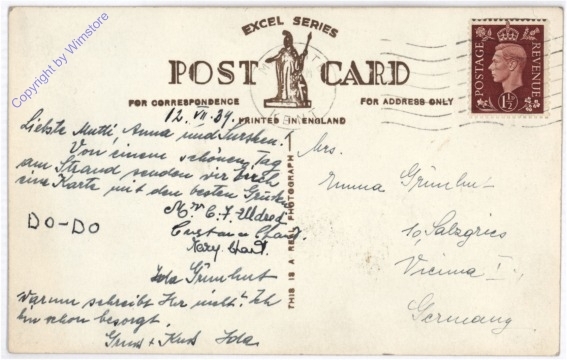 Copyright by Wimstore
EXCEL SERIES
POST CARD
FOR CORRESPONDENCE
FOR ADDRESS ONLY
PRINTED IN ENGLAND
THIS IS A REAL PHOTOGRAPH
POSTAGE REVENUE
1½
12. VII. 39.
Liebste Mutti, Anna und
Von einem schönen Tag
am Strand senden wir Euch
eine Karte mit den besten Grüßen
Mr C. F.
Constance
Mary
DO-DO
Ida Grünhut
Warum schreibt Ihr nicht? Ich
bin schon besorgt.
Gruss + Kuss Ida
Mrs.
Emma Grünhut
10, Salzgries
Vienna I.
Germany